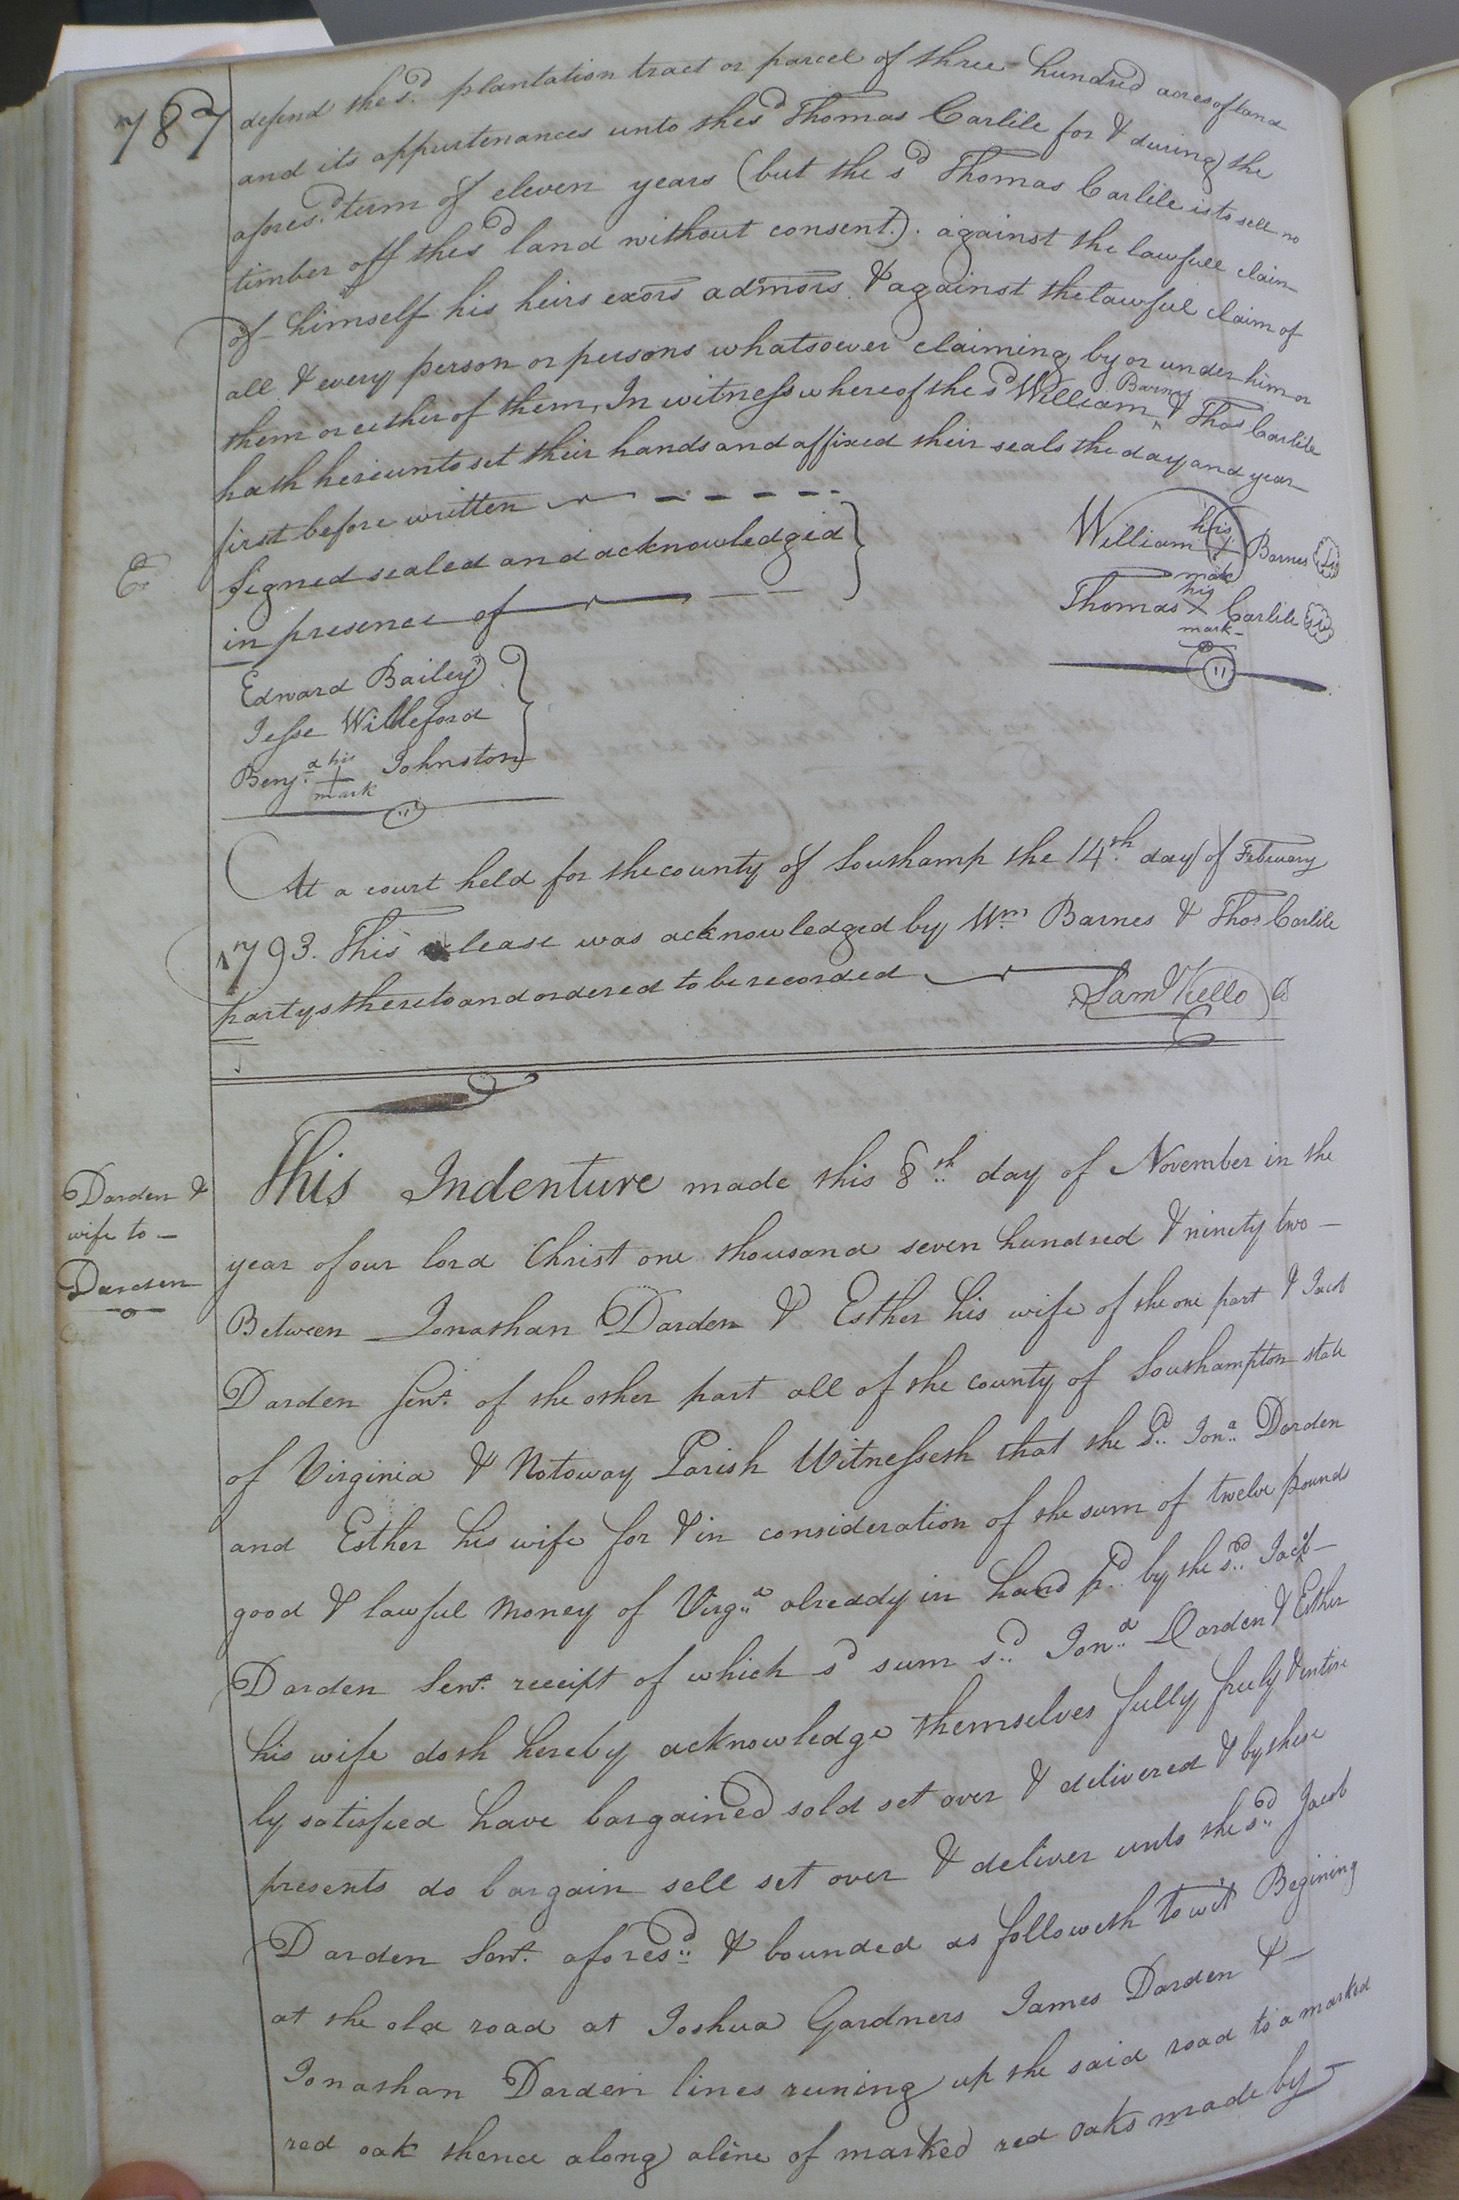 787
defend the sd. plantation tract or parcel of three hundred acres of land
and its appurtenances unto the sd Thomas Carlile for & during the
aforesd. term of eleven years (but the sd Thomas Carlile is to sell no
timber off the sd land without consent). against the lawfull claim
of himself his heirs exors admors & against the lawful claim of
all & every person or persons whatsoever claiming by or under him or
them or either of them, In witness whereof the sd William Barnes & Thos Carlile
hath hereunto set their hands and affixed their seals the day and year
first before written
Signed sealed and acknowledgid
in presence of
William his x mark Barnes
Thomas his x mark Carlile
Edward Bailey
Jesse Williford
Benja. his + mark Johnston
At a court held for the county of Southamp the 14th. day of February
1793. This lease was acknowledged by Wm Barnes & Thos. Carlile
partys thereto and ordered to be recorded
Saml Kello
Darden &
wife to
Darden
This Indenture made this 8th day of November in the
year of our lord Christ one thousand seven hundred & ninety two
Between Jonathan Darden & Esther his wife of the one part & Jacob
Darden Senr. of the other part all of the county of Southampton state
of Virginia & Notoway Parish Witnesseth that the Sd. Jona. Darden
and Esther his wife for & in consideration of the sum of twelve pounds
good & lawful money of Virga already in hand pd. by the sd. Jacb
Darden Senr. receipt of which sd sum sd. Jona Darden & Esther
his wife doth hereby acknowledge themselves fully freely & entire
ly satisfied have bargained sold set over & delivered & by these
presents do bargain sell set over & deliver unto the sd. Jacob
Darden Senr. aforesd. & bounded as followeth to wit Begining
at the old road at Joshua Gardners James Darden &
Jonathan Darden lines runing up the said road to a marked
red oak thence along a line of marked red oaks made by